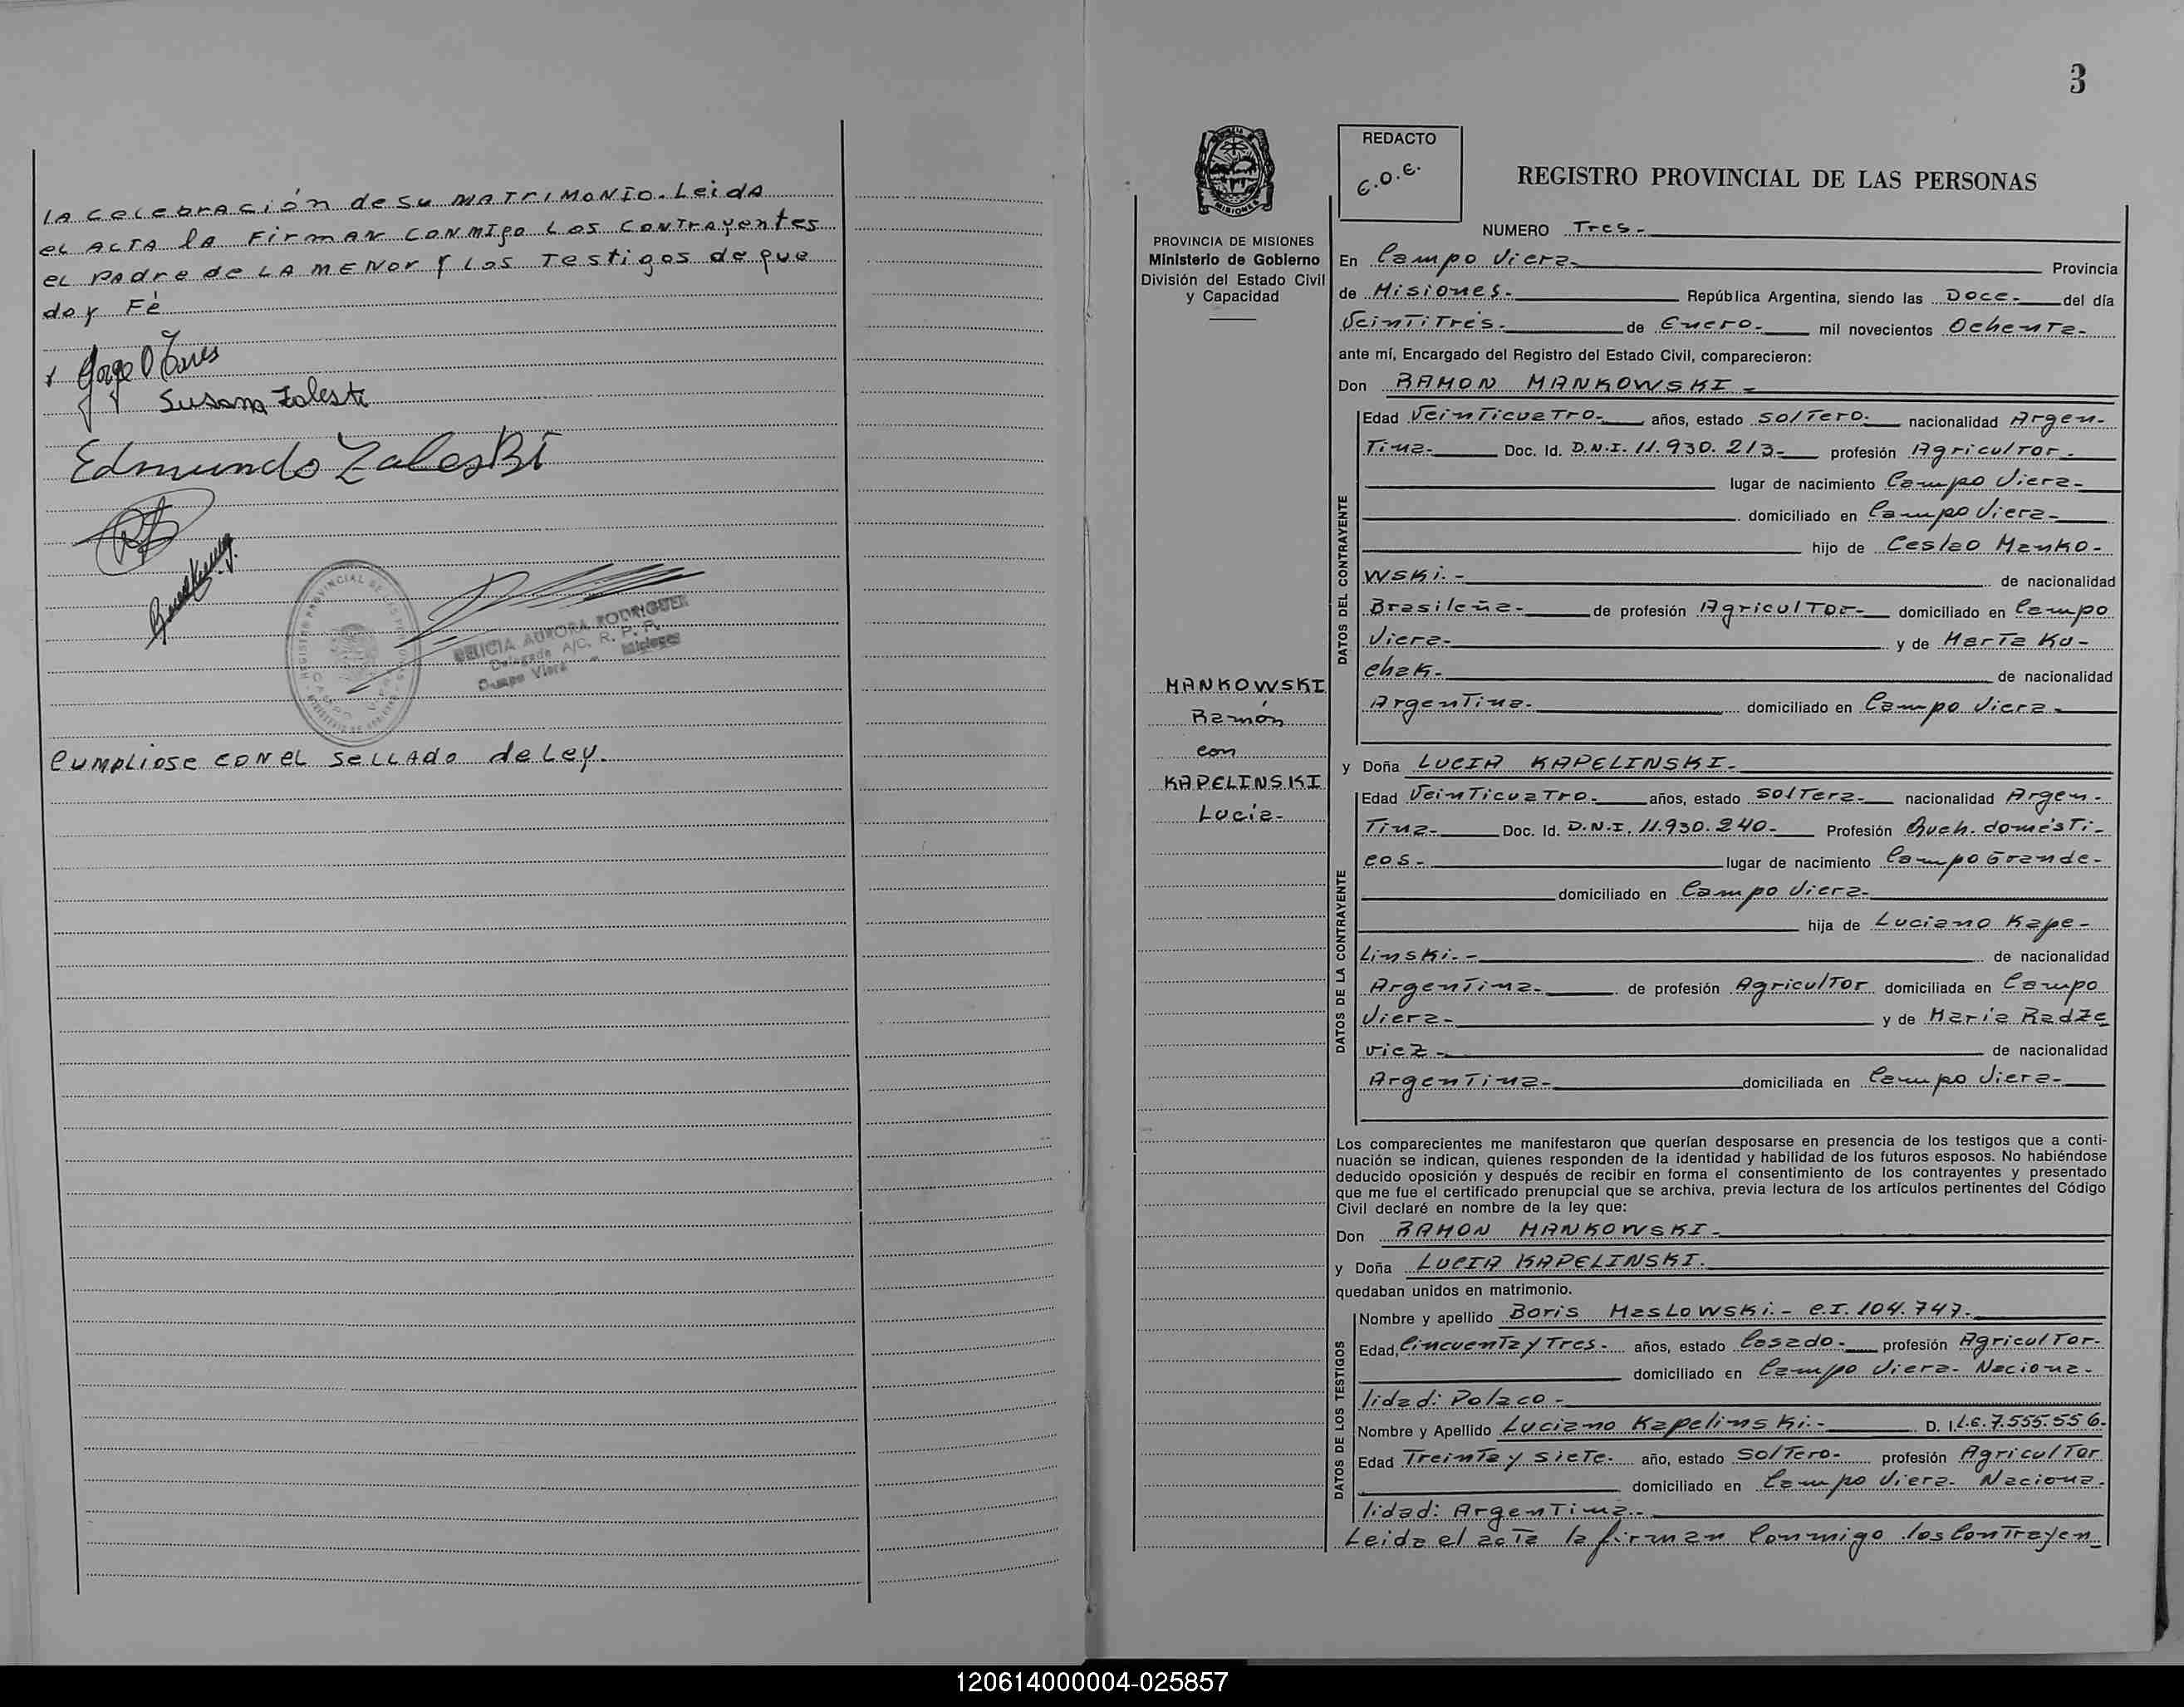 LA celebración de su MATRIMONIO. Leida
el ACTA la Firman conmigo los contrayentes
el padre de la menor y los Testigos de que
doy Fé
Susana Zaleski
Edmundo Zaleski
REGISTRO PROVINCIAL DE LAS PERSONAS
AURORA RODRIGUEZ
Delegada A/C. R. P. P.
Campo Viera - Misiones
Cumpliose con el sellado de Ley.
3
REDACTO
C.O.E.
REGISTRO PROVINCIAL DE LAS PERSONAS
MISIONES
PROVINCIA DE MISIONES
Ministerio de Gobierno
División del Estado Civil
y Capacidad
MANKOWSKI
Ramón
con
KAPELINSKI
Lucía-
NUMERO Tres-
En Campo Viera- Provincia
de Misiones.- República Argentina, siendo las Doce- del día
Veintitrés.- de Enero.- mil novecientos Ochenta-
ante mí, Encargado del Registro del Estado Civil, comparecieron:
Don RAMON MANKOWSKI-
DATOS DEL CONTRAYENTE
Edad Veinticuatro- años, estado Soltero- nacionalidad Argen-
tina- Doc. Id. D.N.I. 11.930.213- profesión Agricultor-
lugar de nacimiento Campo Viera-
domiciliado en Campo Viera-
hijo de Ceslao Manko-
wski.- de nacionalidad
Brasileña- de profesión Agricultor- domiciliado en Campo
Viera- y de Marta Ku-
chak- de nacionalidad
Argentina- domiciliado en Campo Viera-
y Doña LUCIA KAPELINSKI-
DATOS DE LA CONTRAYENTE
Edad Veinticuatro- años, estado Soltera- nacionalidad Argen-
tina- Doc. Id. D.N.I. 11.930.240- Profesión Queh. domésti-
cos- lugar de nacimiento Campo Grande-
domiciliado en Campo Viera-
hija de Luciano Kape-
linski.- de nacionalidad
Argentina- de profesión Agricultor domiciliada en Campo
Viera- y de María Radze
vicz- de nacionalidad
Argentina- domiciliada en Campo Viera-
Los comparecientes me manifestaron que querían desposarse en presencia de los testigos que a conti-
nuación se indican, quienes responden de la identidad y habilidad de los futuros esposos. No habiéndose
deducido oposición y después de recibir en forma el consentimiento de los contrayentes y presentado
que me fue el certificado prenupcial que se archiva, previa lectura de los artículos pertinentes del Código
Civil declaré en nombre de la ley que:
Don RAMON MANKOWSKI-
y Doña LUCIA KAPELINSKI.
quedaban unidos en matrimonio.
DATOS DE LOS TESTIGOS
Nombre y apellido Boris Maslowski.- C.I. 104.747-
Edad, Cincuenta y Tres- años, estado Casado- profesión Agricultor-
domiciliado en Campo Viera- Naciona-
lidad: Polaco-
Nombre y Apellido Luciano Kapelinski.- D. I. L.E. 7.555.556-
Edad Treinta y Siete- año, estado Soltero- profesión Agricultor
domiciliado en Campo Viera- Naciona-
lidad: Argentina.-
Leida el acta la firman Conmigo los Contrayen-
120614000004-025857